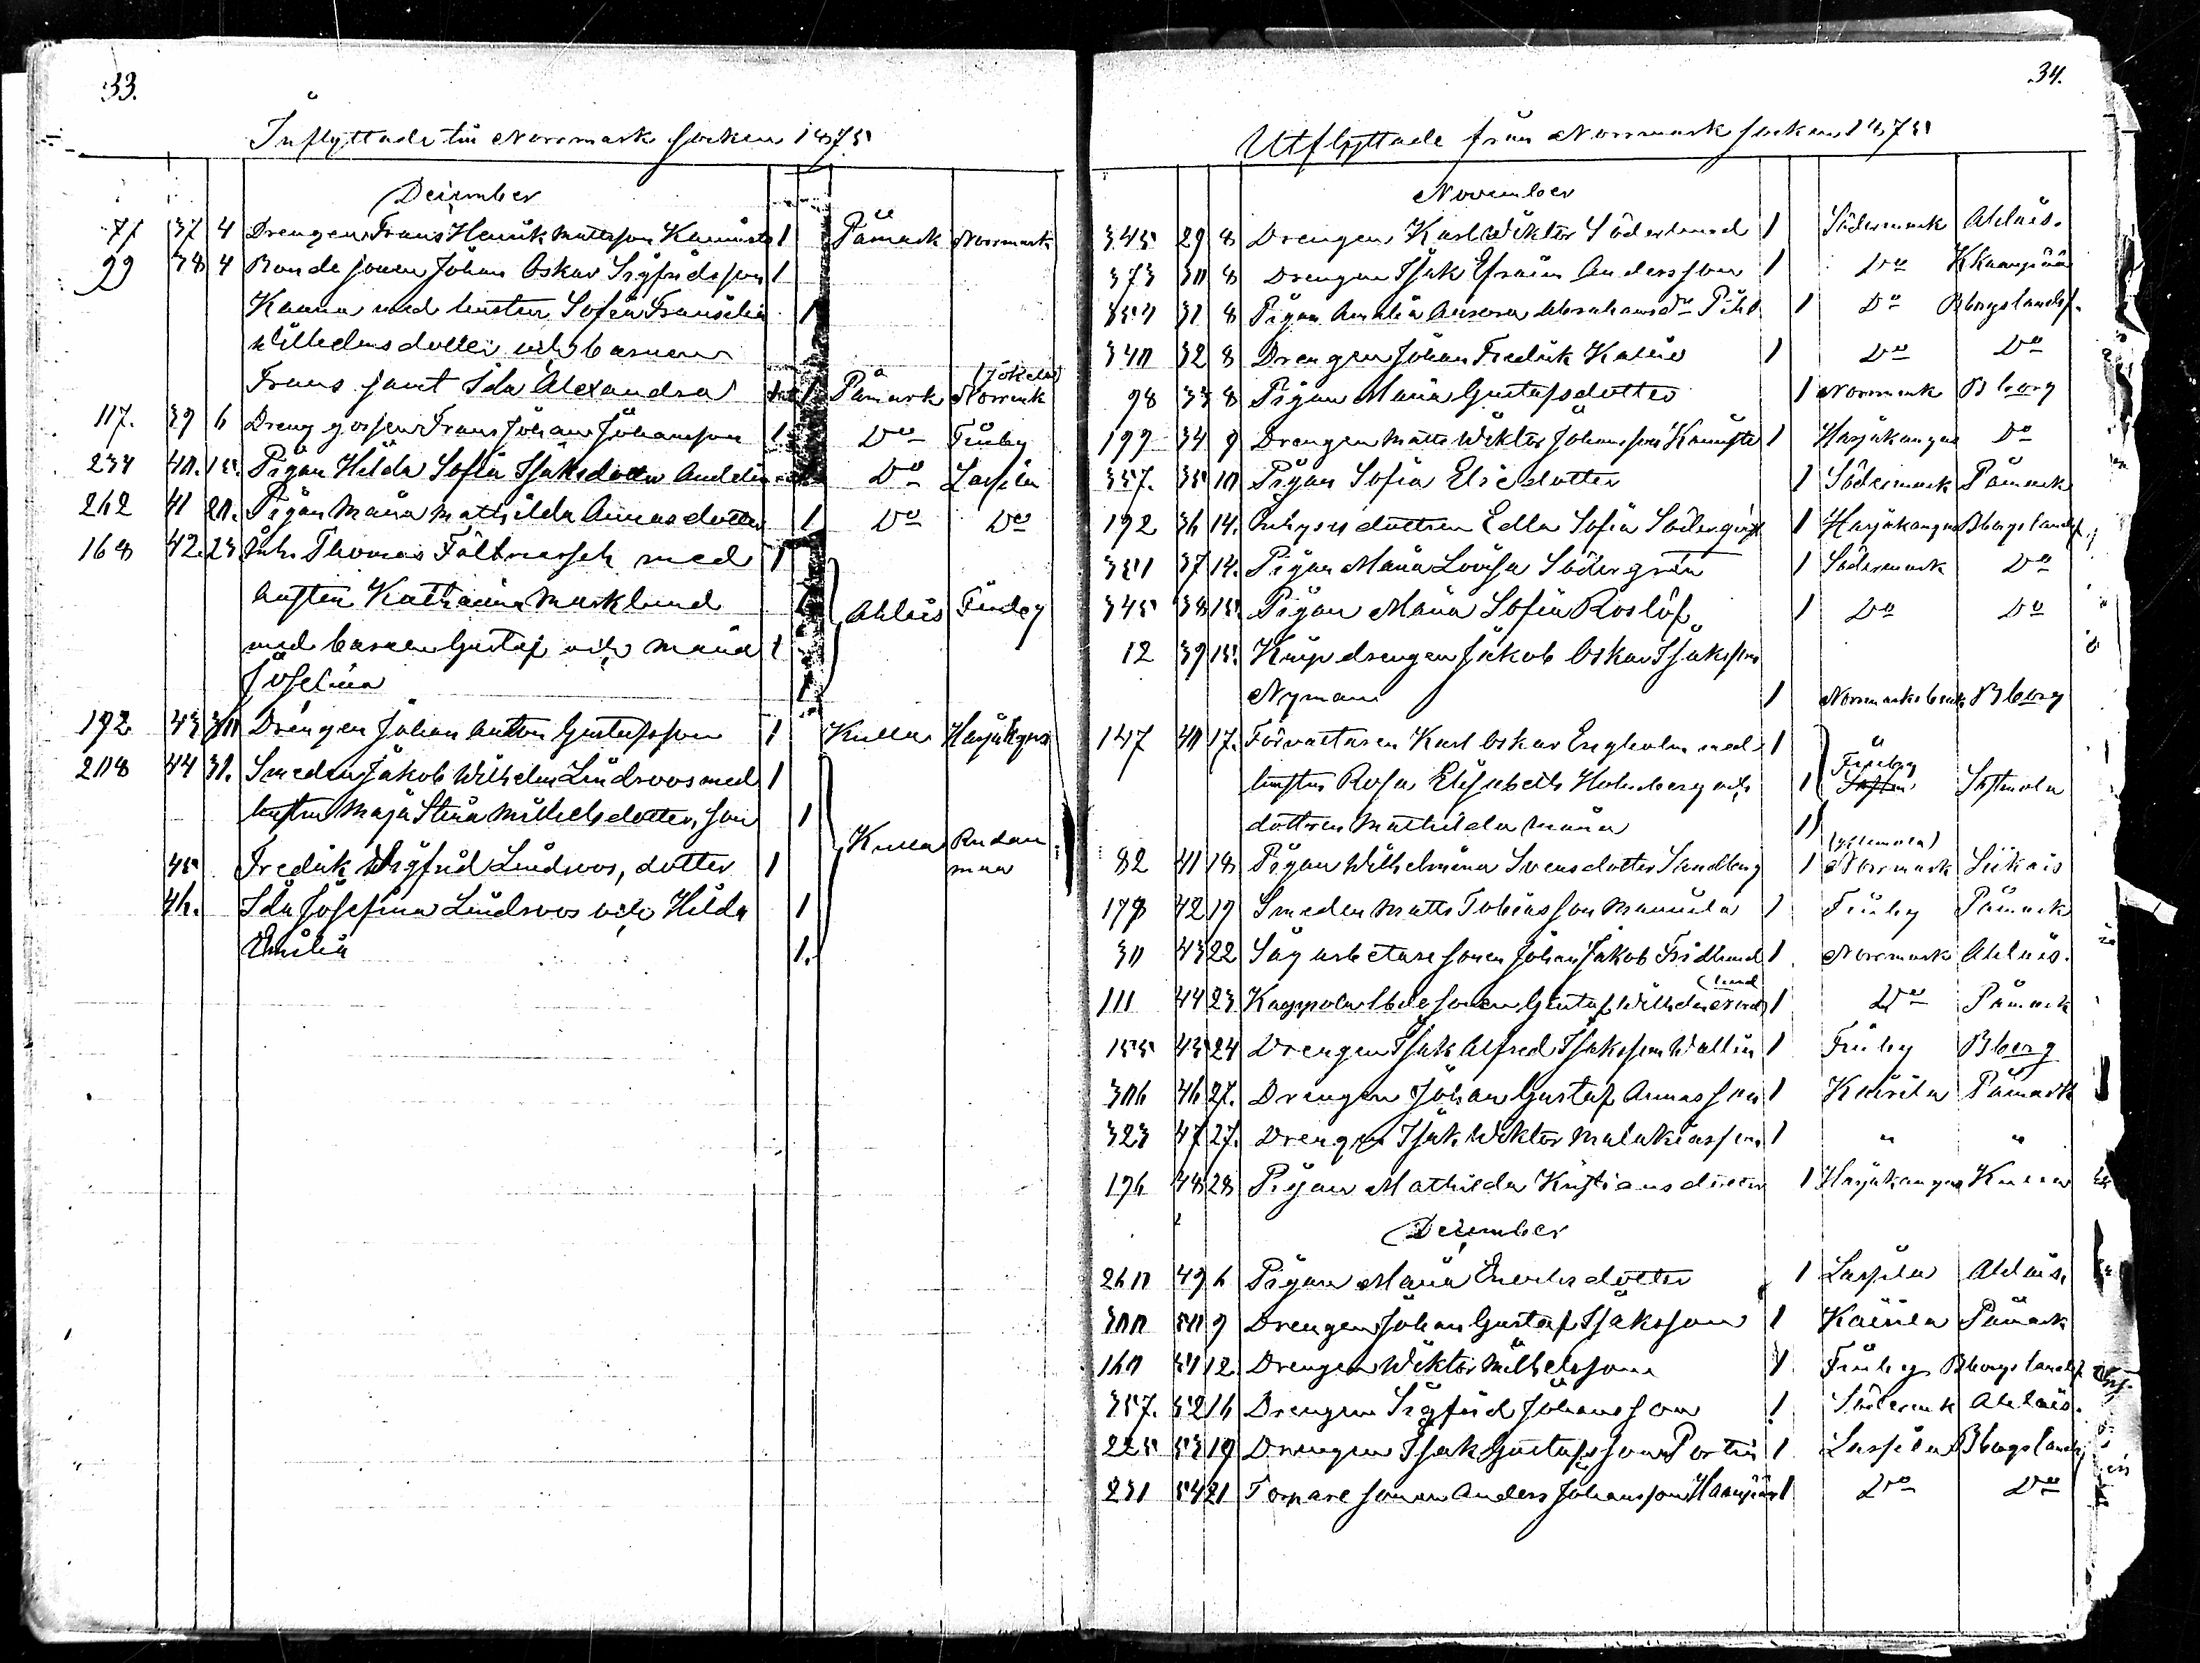 33.
Inflyttade till Norrmark socken 1875
December
77 37 4 Drengen Frans Henrik Mattsson 1 Påmark Norrmark
99 38 4 Bondesonen Johan Oskar Sigfridsson 1
Kauna med hustru Sofia Fransilia 1
Wilhelmsdotter och barnen
Frans samt Ida Alexandra 1 Påmark Norrmk
117. 39 6 Dreng gossen Frans Johan Johansson 1 Do Finby
234 40. 15. Pigan Hilda Sofia Isaksdotter Do Lassila
262 41 20. Pigan Maria Mathilda Annasdotter 1 Do Do
168 42. 23 Inh. Thomas Fältmarsch med 1
hustru Katharina Marklund Ahlais Finby
med barnen Gustaf och Maria 1
Josefina 1
192 43 30 Drengen Johan Anton Gustafsson 1 Kulla Harjakgas
208 44 31. Smeden Jakob Wilhelm Lindroos med 1
hustru Maja Stina Mickelsdotter, son 1 Kulla Rudanmaa
45 Fredrik Sigfrid Lindroos, dotter 1
46. Ida Josefina Lindroos och Hilda 1
Emilia 1.
34.
Utflyttade från Norrmark socken 1875
November
345 29 8 Drengen Karl Wiktor Söderlund 1 Södermark Ahlais.
373 30 8 Drengen Isak Efraim Andersson 1 Do Kkaanpää
354 31 8 Pigan Amalia Aurora Abrahamsdr Pihl 1 Do Bborgslandsf.
340 32 8 Drengen Johan Fredrik 1 Do Do
98 33 8 Pigan Maria Gustafsdotter 1 Norrmark Bborg
199 34 9 Drengen Matts Wiktor Johansson 1 Harjakangas Do
357. 35 10 Pigan Sofia Eliedotter 1 Södermark Påmark
192 36 14. Inhyses dottren Edla Sofia Söderqvist 1 Harjakangas Bborgslandsf.
351 37 14. Pigan Maria Lovisa Södergren 1 Södermark Do
345 38 15. Pigan Maria Sofia Roslöf 1 Do Do
12 39 15. drengen Jakob Oskar Isaksson
Nyman 1 Norrmarks bruk Bborg
147 40 17. Förvaltaren Karl Oskar Engholm med 1
hustru Rosa Elisabeth Holmberg och 1 Finby Sastmola
dottren Mathilda Maria 1
82 41 18 Pigan Wilhelmina Svensdotter Sandberg 1 Norrmark Siikais
178 42 19 Smeden Matts Tobiasson Mannila 1 Finby Påmark
30 43 22 Sågarbetaresonen Johan Jakob Fridlund 1 Norrmark Ahlais.
111 44 23 sonen Gustaf Wilhelm 1 Do Påmark
155 45 24 Drengen Isak Alfred Isaksson Wallin 1 Finby Bborg
306 46 27. Drengen Johan Gustaf Annasson 1 Kairila Påmark
323 47 27. Drengen Isak Wiktor Malakiasson 1 " "
196 48 28 Pigan Mathilda Kristiansdotter 1 Harjakangas Kulla
December
260 49 6 Pigan Maria Enochsdotter 1 Lassila Ahlais.
300 50 9 Drengen Johan Gustaf Isaksson 1 Kairila Påmark
160 51 12 Drengen Wiktor Mickelsson 1 Finby Bborgslandsf.
357. 52 16 Drengen Sigfrid Johansson 1 Södermk Ahlais.
225 53 19 Drengen Isak Gustafsson Portin 1 Lassila Bborgslandsf.
231 54 21 Torparesonen Anders Johansson Haanpää 1 Do Do